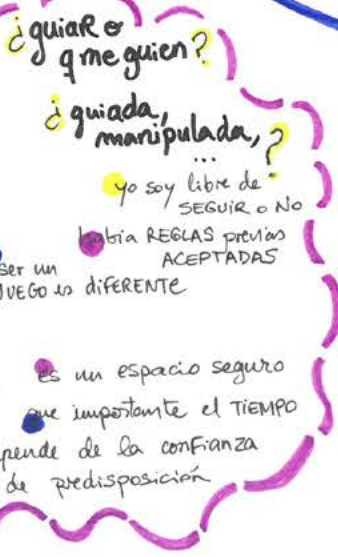 ¿guiaR o
q me guien?
¿guiada,
manipulada,?
...
yo soy libre de
SEGUIR o NO
había REGLAS previas
ACEPTADAS
ser un
JUEGO es diFERENTE
es un espacio seguro
que importante el TIEMPO
pende de la confianza
de predisposición